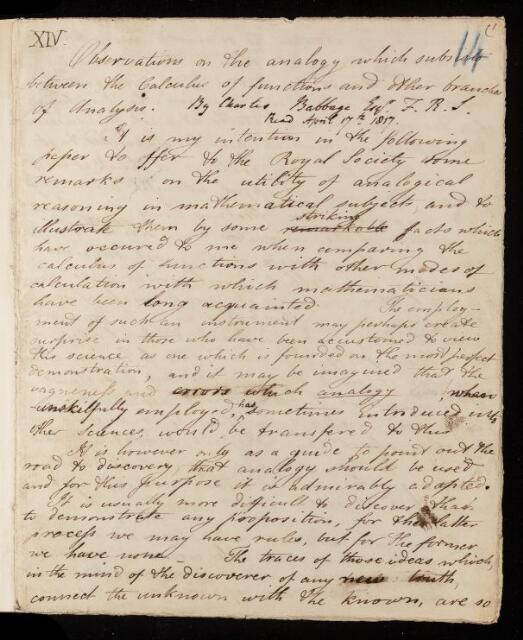 XIV
14
Observations on the analogy which subsists
between the Calculus of functions and other branches
of Analysis. By Charles Babbage Esqr. F.R.S.
Read April 17th 1817.
It is my intention in the following
paper to offer to the Royal Society some
remarks on the utility of analogical
reasoning in mathematical subjects and to
striking
illustrate them by some remarkable facts which
have occured to me when comparing the
calculus of functions with other modes of
calculation with which mathematicians
have been long acquainted. The employ-
ment of such an instrument may perhaps create
surprise in those who have been accustomed to view
this science as one which is founded on the most perfect
demonstration, and it may be imagined that the
vagueness and errors which analogy when
unskilfully employed has sometimes introduced into
other sciences, would be transfered to this
It is however only as a guide to point out the
road to discovery, that analogy should be used
and for this purpose it is admirably adapted.
It is usually more difficult to discover than
to demonstrate any proposition, for the latter
process we may have rules, but for the former
we have none – The traces of those ideas which,
in the mind of the discoverer of any new truth,
connect the unknown with the known, are so